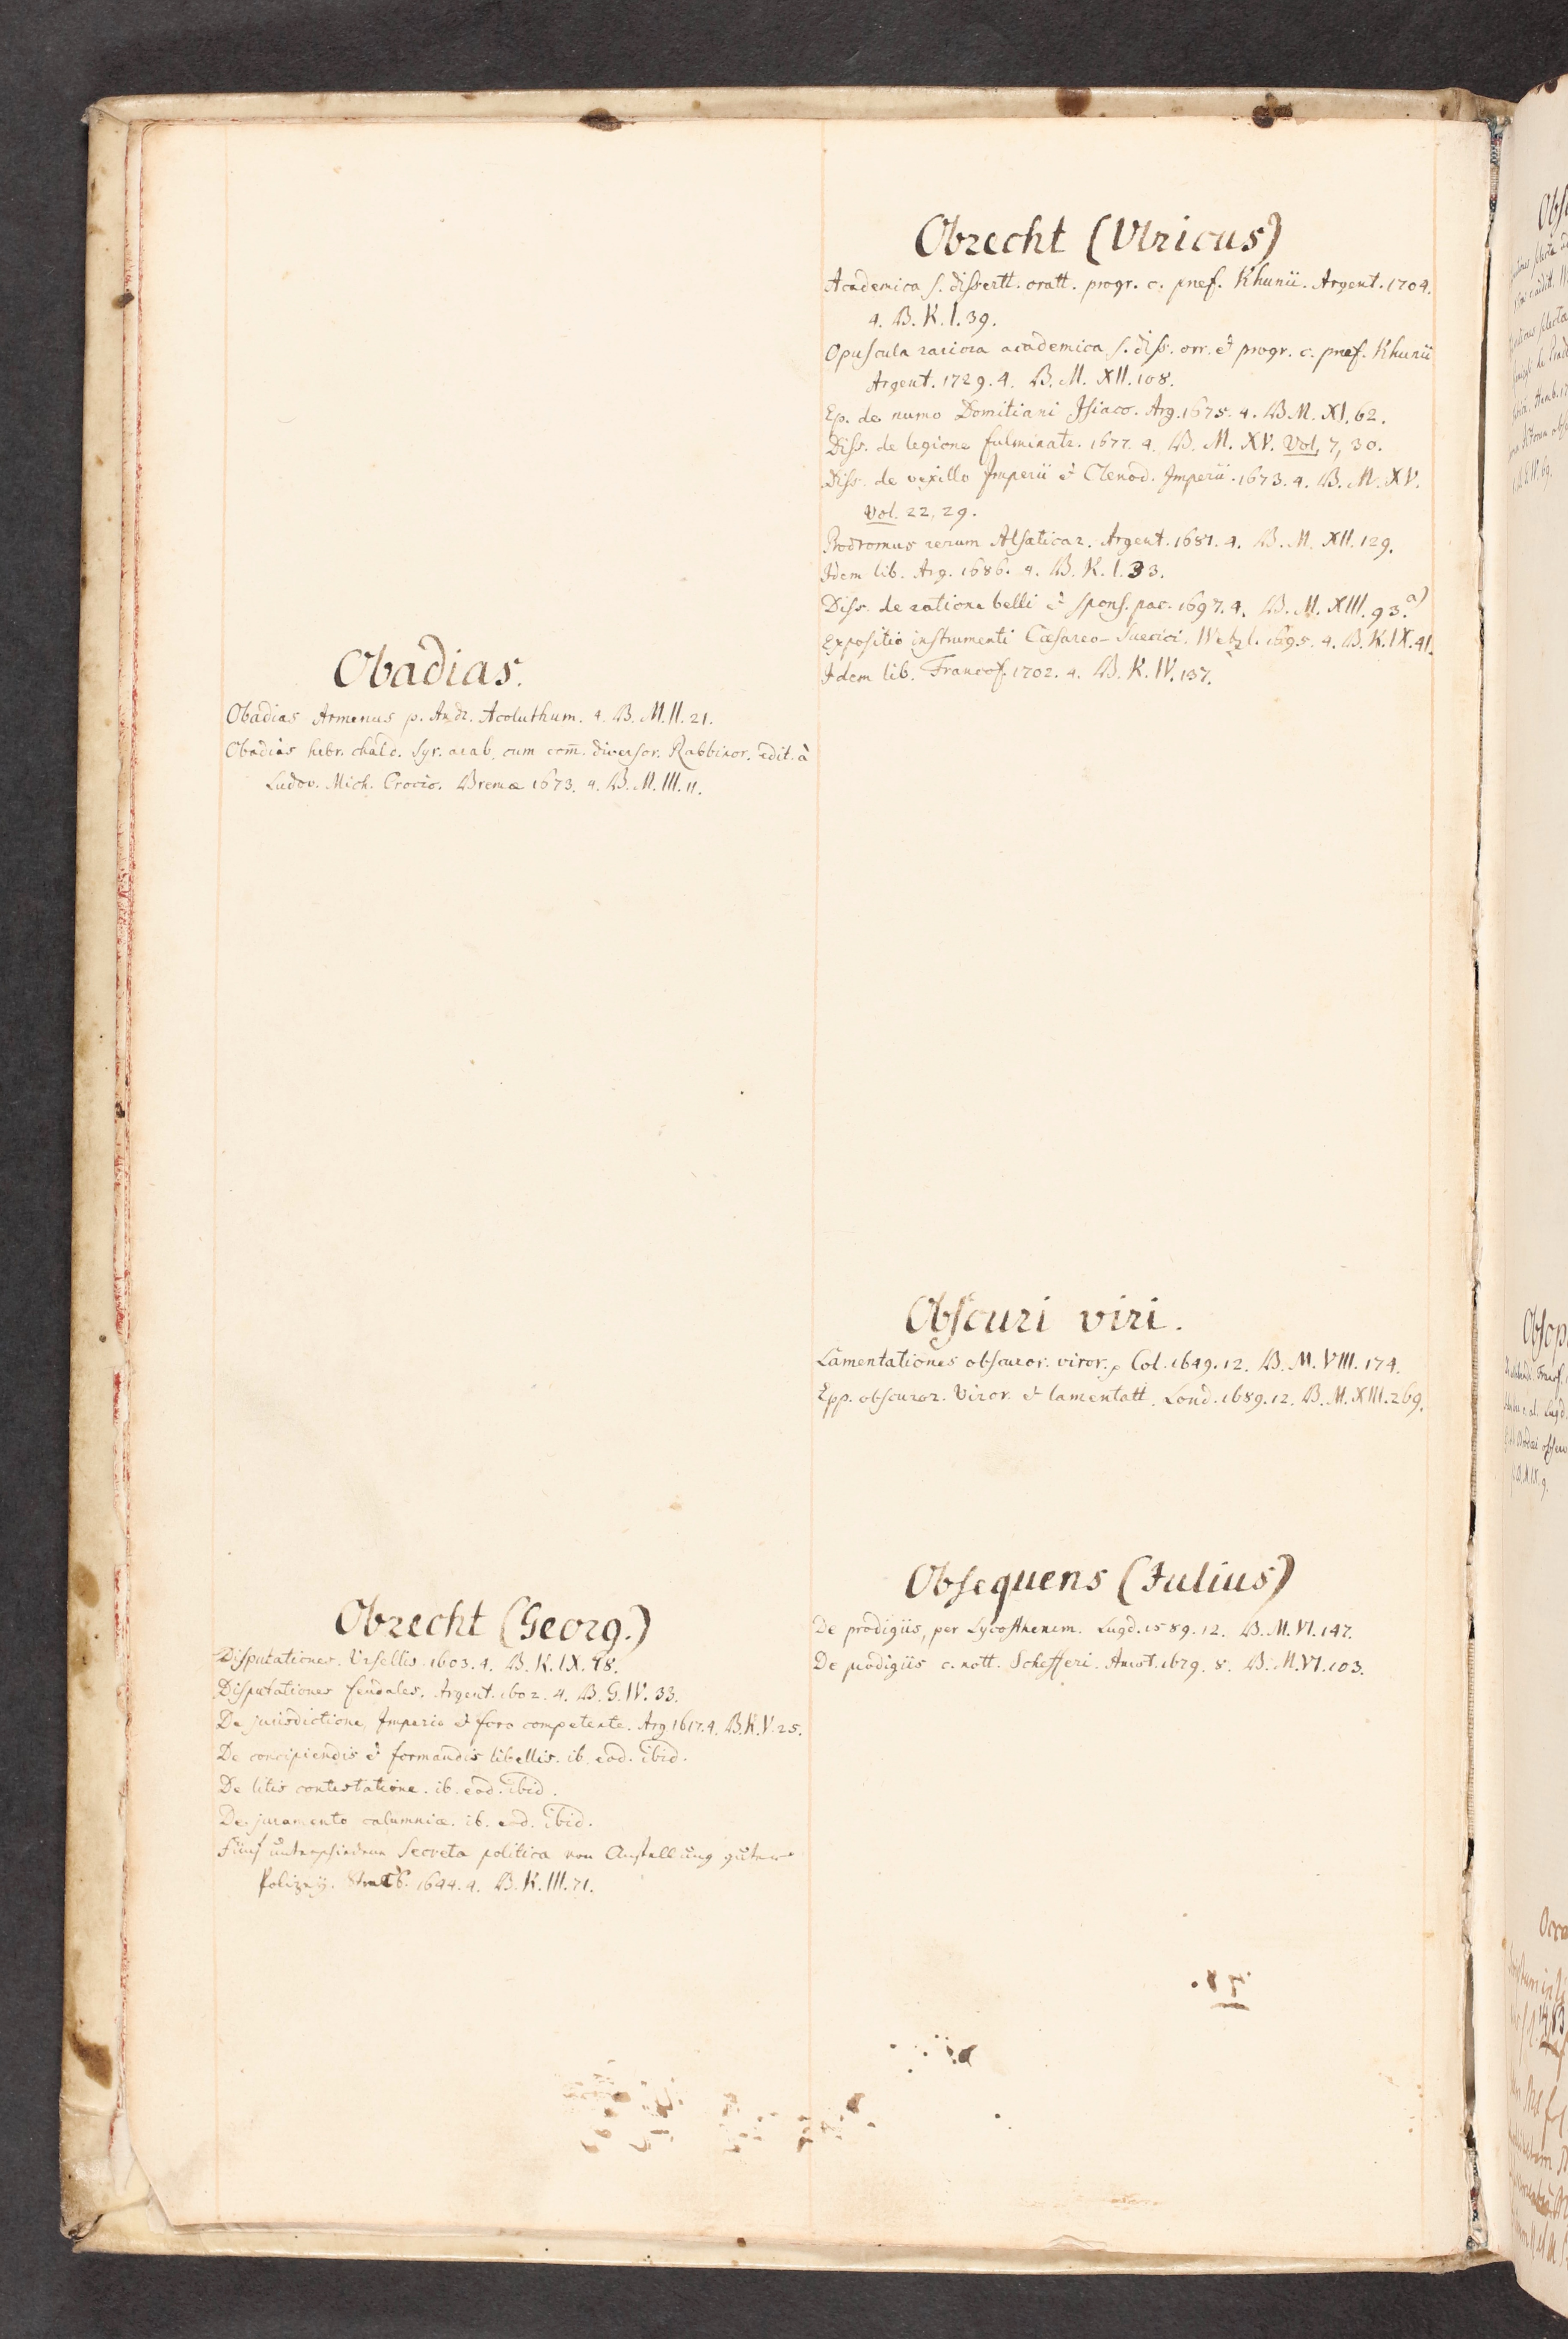 Obadias.
Obadias Armenus p. Andr. Acoluthum. 4. B. M. II. 21.
Obadias hebr. chald. syr. arab. cum com̄. diversor. Rabbinor. edit. à
Ludov. Mich. Crocio. Bremæ 1673. 4. B. M. III. 11.
Obrecht (Georg.)
Disputationes. Ursellis. 1603. 4. B. K. IX. 48.
Disputationes feudales. Argent. 1602. 4. B. G. IV. 33.
De jurisdictione, Imperio & foro competente. Arg. 1617. 4. B. K. V. 25.
De concipiendis & formandis libellis. ib. eod. ibid.
De litis contestatione. ib. eod. ibid.
De juramento calumniæ. ib. eod. ibid.
Fünf unterschiedene Secreta politica von Anstellung guter
Polizeÿ. Strasb. 1644. 4. B. K. III. 71.
Obrecht (Ulricus)
Academica s. dissertt. oratt. progr. c. præf. Khunii. Argent. 1704.
4. B. K. I. 39.
Opuscula rariora academica s. diss. orr. & progr. c. præf. Khunii
Argent. 1729. 4. B. M. XII. 108.
Ep. de numo Domitiani Isiaco. Arg. 1675. 4. B. M. XI. 62.
Diss. de legione fulminatr. 1677. 4. B. M. XV. Vol. 7, 30.
Diss. de vexillo Imperii & Clenod. Imperii. 1673. 4. B. M. XV.
Vol. 22, 29.
Prodromus rerum Alsaticar. Argent. 1681. 4. B. M. XII. 129.
Idem lib. Arg. 1686. 4. B. K. I. 33.
Diss. de ratione belli & spons. pac. 1697. 4. B. M. XIII. 93. a)
Expositio instrumenti Cæsareo-Suecici. Wetzl. 1695. 4. B. K. IX. 41.
Idem lib. Francof. 1702. 4. B. K. IV. 137.
Obscuri viri.
Lamentationes obscuror. viror. Col. 1649. 12. B. M. VIII. 174.
Epp. obscuror. Viror. & lamentatt. Lond. 1689. 12. B. M. XIII. 269.
Obsequens (Julius)
De prodigiis, per Lycosthenem. Lugd. 1589. 12. B. M. VI. 147.
De prodigiis c. nott. Schefferi. Amst. 1679. 8. B. M. VI. 103.